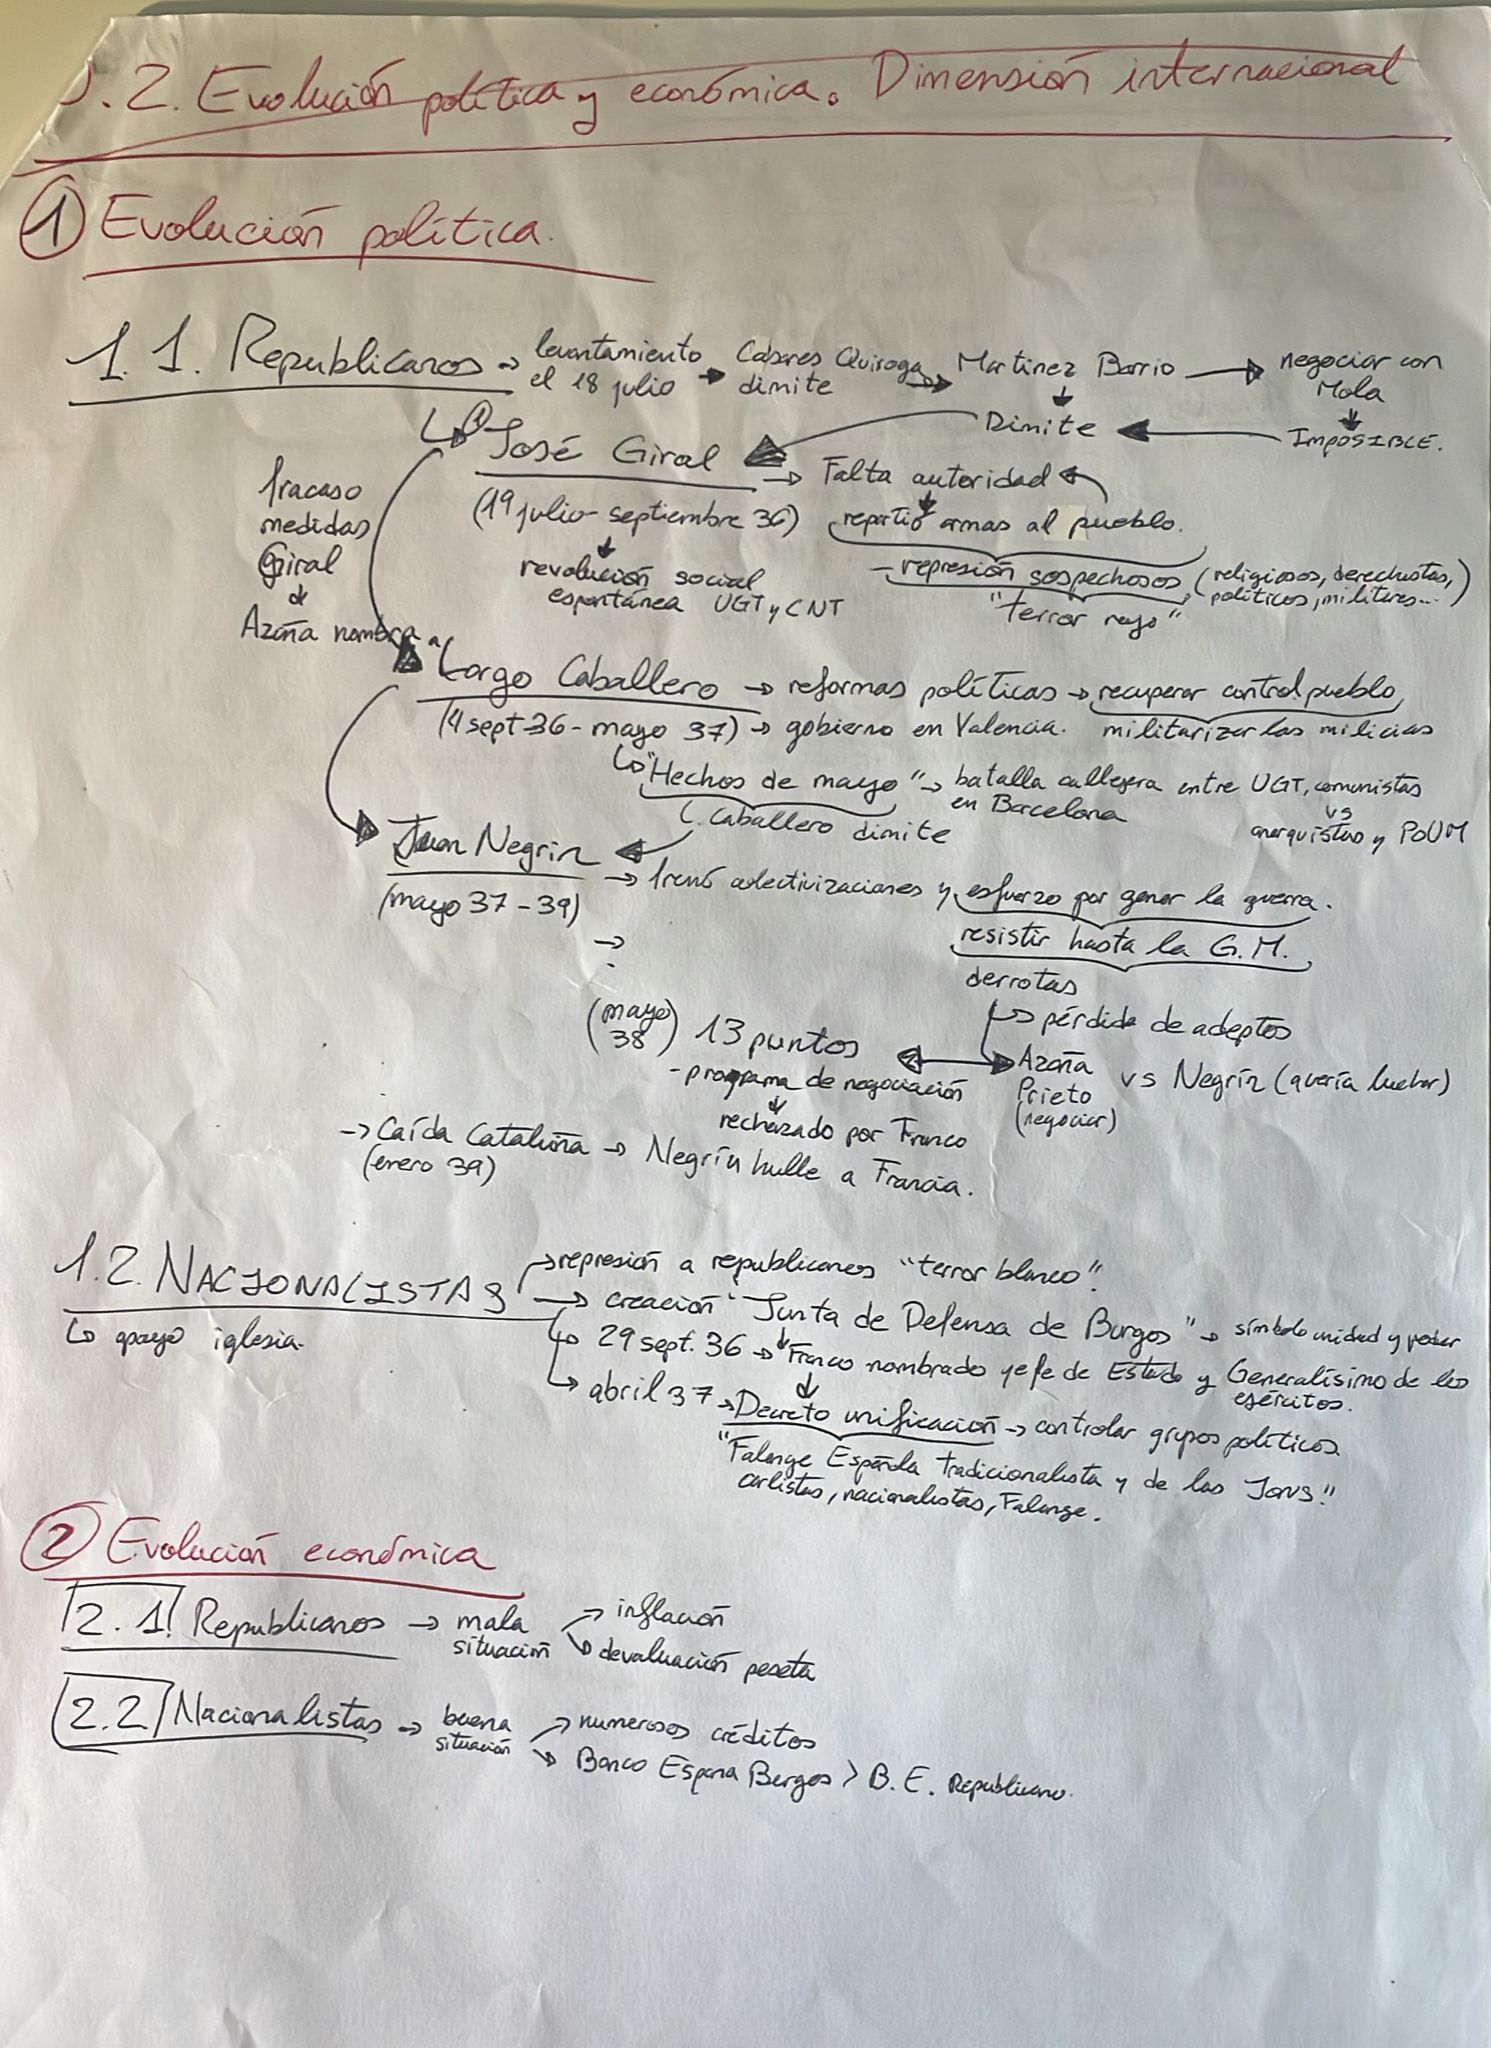 .2. Evolución política y económica. Dimensión internacional
1 Evolución política.
1.1. Republicanos → levantamiento el 18 julio → Casares Quiroga dimite → Martinez Barrio → negociar con Mola
↓ IMPOSIBLE.
Dimite
① José Giral → Falta autoridad
(19 julio - septiembre 36) repartió armas al pueblo.
fracaso
medidas
Giral
↓
Azaña nombra a
revolución social
espontánea UGT y CNT
- represión sospechosos (religiosos, derechistas,
políticos, militares...)
"terror rojo"
Largo Caballero → reformas políticas → recuperar control pueblo,
(4 sept 36 - mayo 37) → gobierno en Valencia. militarizar las milicias
↳ "Hechos de mayo" → batalla callejera entre UGT, comunistas
en Barcelona vs
anarquistas y POUM
L. Caballero dimite
Juan Negrín
(mayo 37 - 39)
→ frenó colectivizaciones y esfuerzo por ganar la guerra.
→
resistir hasta la G.M.
derrotas
↳ pérdida de adeptos
(mayo 38) 13 puntos ↔ Azaña
Prieto
(negociar)
vs Negrín (quería luchar)
- programa de negociación
↓
rechazado por Franco
→ Caída Cataluña → Negrín hulle a Francia.
(enero 39)
1.2. NACIONALISTAS → represión a republicanos "terror blanco".
↳ apoyo iglesia.
→ creación "Junta de Defensa de Burgos" → símbolo unidad y poder
↳ 29 sept. 36 → Franco nombrado jefe de Estado y Generalísimo de los
ejércitos.
↳ abril 37 → Decreto unificación → controlar grupos políticos
"Falange Española tradicionalista y de las JONS."
carlistas, nacionalistas, Falange.
2 Evolución económica
2.1. Republicanos → mala situación → inflación
↘ devaluación peseta
2.2 Nacionalistas → buena situación → numerosos créditos
↘ Banco Espana Burgos > B.E. Republicano.